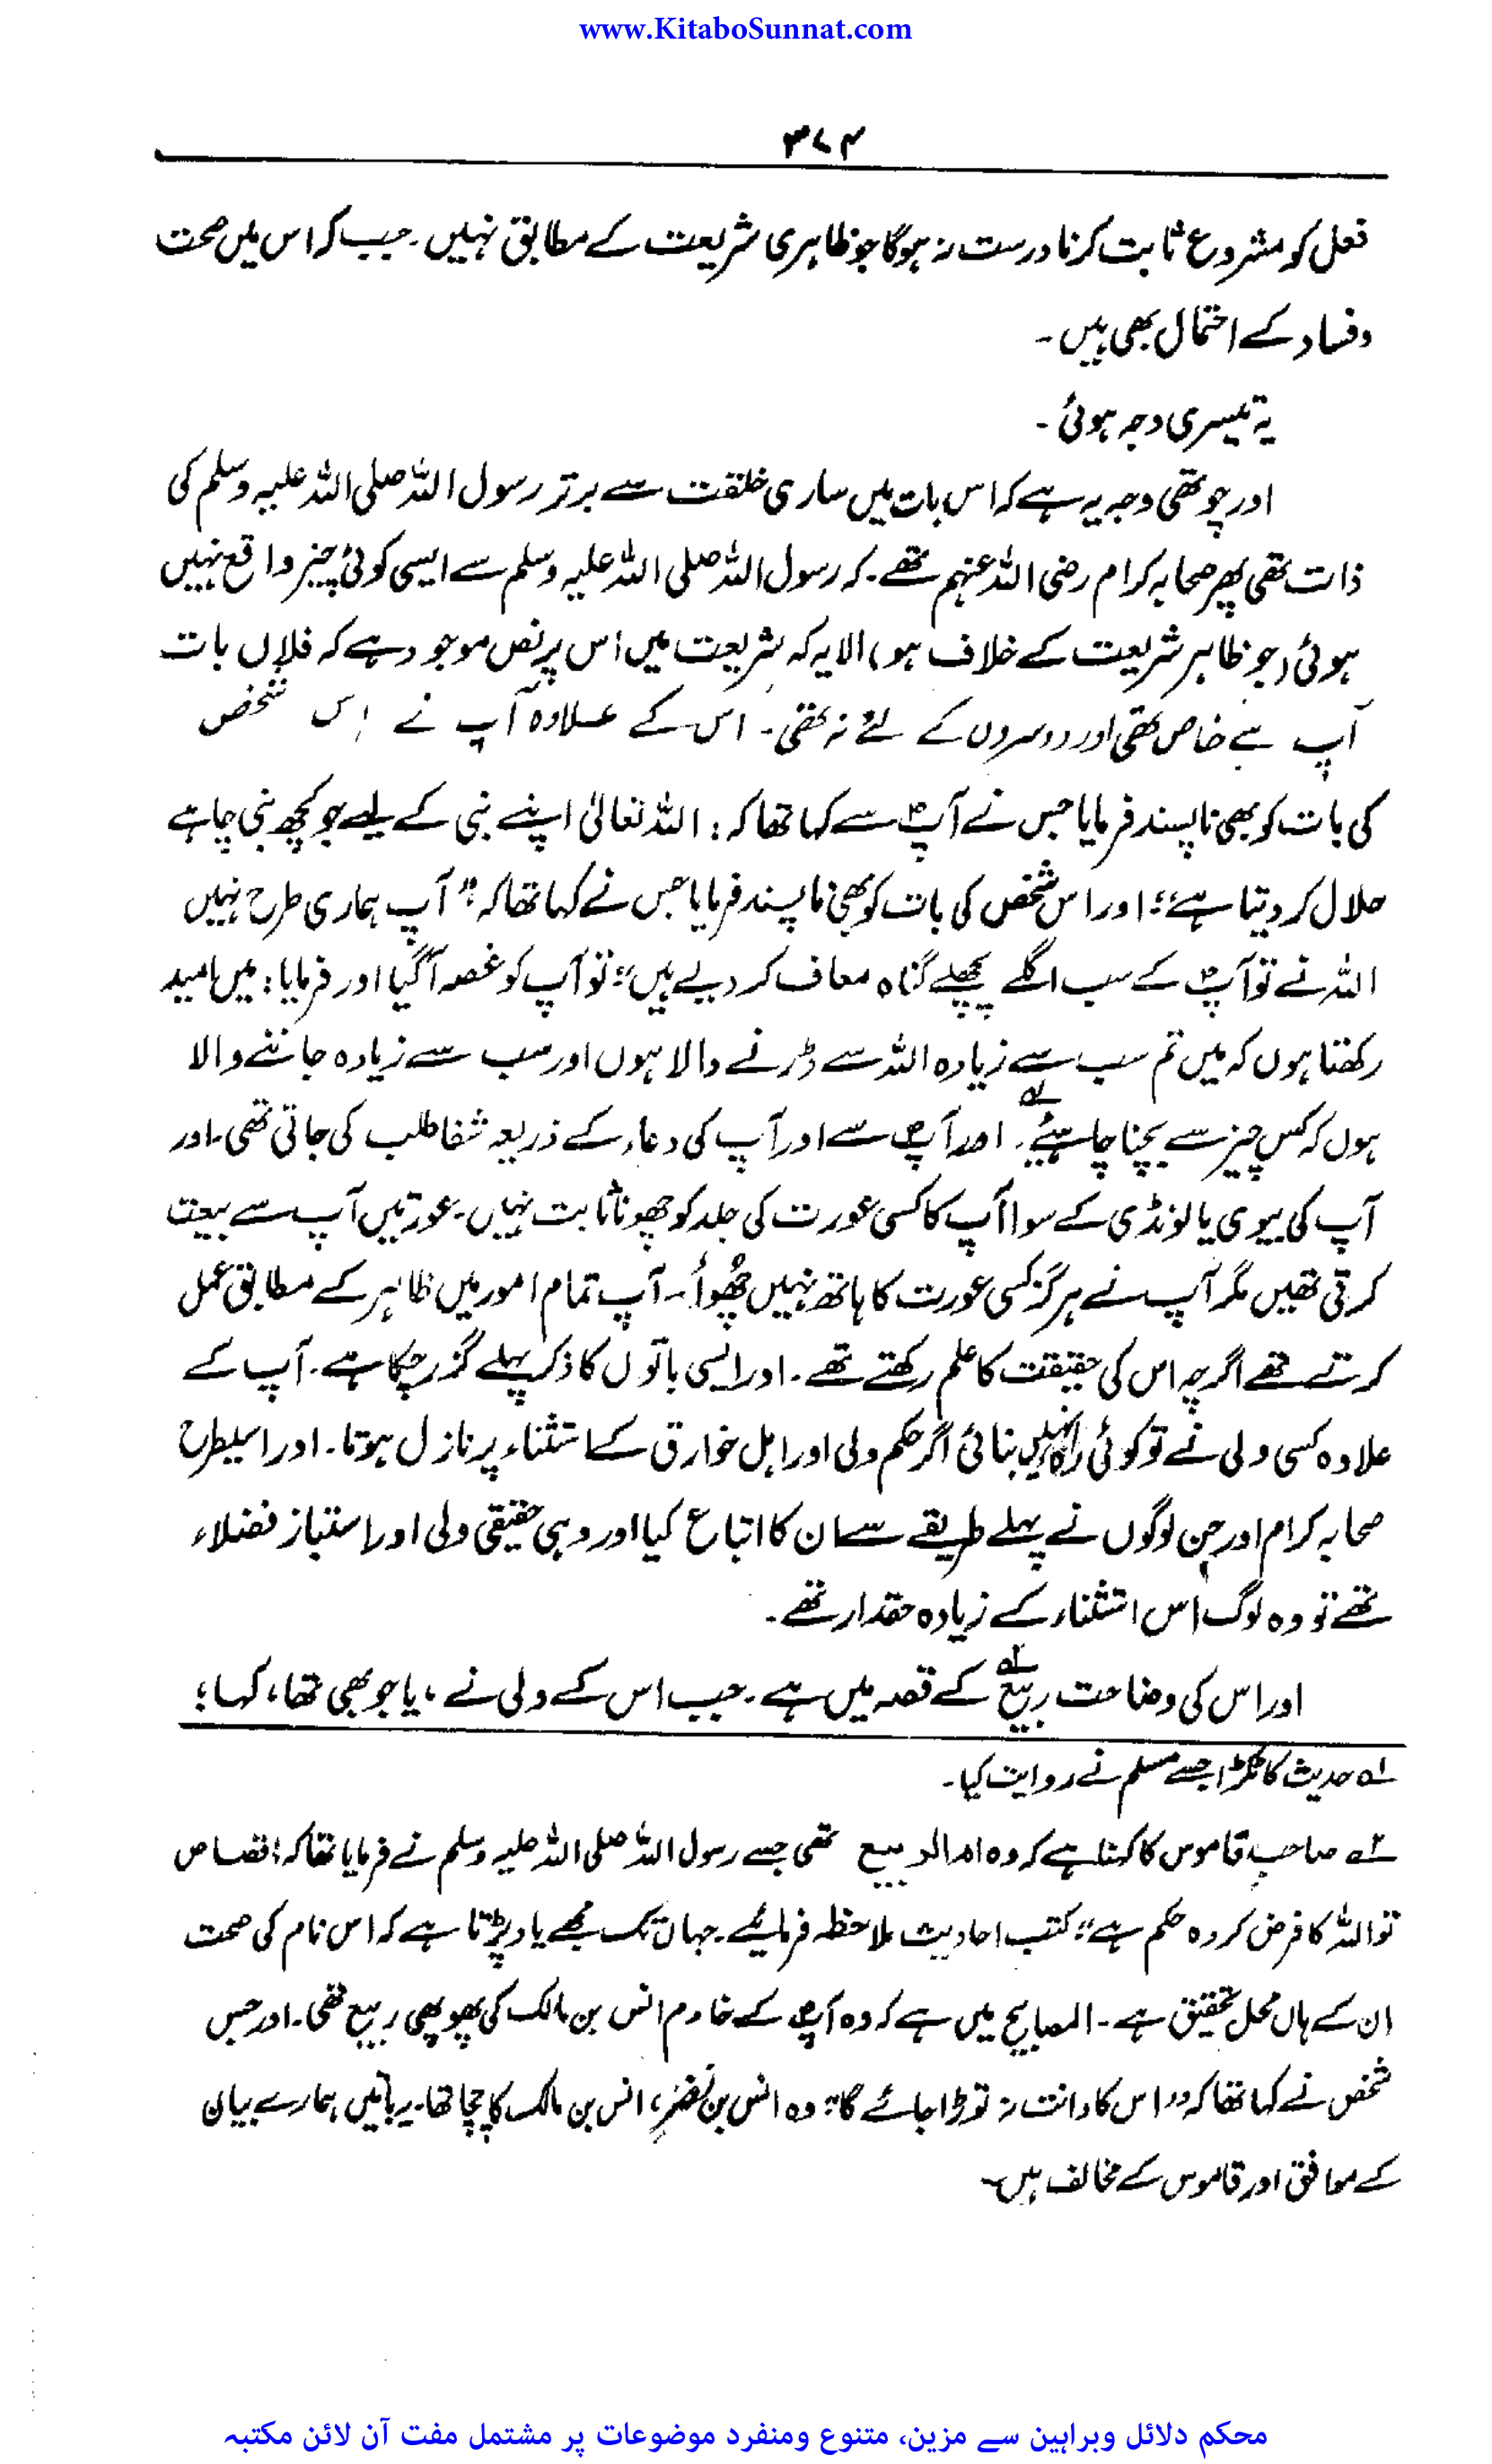 www.KitaboSunnat.com
۳۷۴
فعل کو مشروع ثابت کرنا درست نہ ہوگا جو ظاہری شریعت کے مطابق نہیں۔ جب کہ اس میں صحت
وفساد کے احتمال بھی ہیں۔
یہ تیسری وجہ ہوئی۔
اور چوتھی وجہ یہ ہے کہ اس بات میں ساری خلقت سے برتر رسول اللہ صلی اللہ علیہ وسلم کی
ذات تھی پھر صحابہ کرام رضی اللہ عنہم تھے۔ کہ رسول اللہ صلی اللہ علیہ وسلم سے ایسی کوئی چیز واقع نہیں
ہوئی (جو ظاہر شریعت کے خلاف ہو) الا یہ کہ شریعت میں اس پر نص موجود ہے کہ فلاں بات
آپ سے خاص تھی اور دوسروں کے لئے نہ تھی۔ اس کے علاوہ آپ نے اس شخص
کی بات کو بھی ناپسند فرمایا جس نے آپؐ سے کہا تھا کہ: اللہ تعالیٰ اپنے نبی کے لیے جو کچھ نبی چاہے
حلال کر دیتا ہے؛ اور اس شخص کی بات کو بھی ناپسند فرمایا جس نے کہا تھا کہ ”آپ ہماری طرح نہیں
اللہ نے تو آپؐ کے سب اگلے پچھلے گناہ معاف کر دیے ہیں“ تو آپ کو غصہ آگیا اور فرمایا: میں امید
رکھتا ہوں کہ میں تم سب سے زیادہ اللہ سے ڈرنے والا ہوں اور سب سے زیادہ جاننے والا
ہوں کہ کس چیز سے بچنا چاہیئے۔ ؎۱ اور آپؐ سے اور آپ کی دعاء کے ذریعہ شفا طلب کی جاتی تھی۔ اور
آپ کی بیوی یا لونڈی کے سوا آپ کا کسی عورت کی جلد کو چھونا ثابت نہیں۔ عورتیں آپ سے بیعت
کرتی تھیں مگر آپ نے ہرگز کسی عورت کا ہاتھ نہیں چھُوأ۔ آپ تمام امور میں ظاہر کے مطابق عمل
کرتے تھے اگرچہ اس کی حقیقت کا علم رکھتے تھے۔ اور ایسی باتوں کا ذکر پہلے گزر چکا ہے۔ آپ کے
علاوہ کسی ولی نے تو کوئی راہ نہیں بنائی اگر حکم ولی اور اہل خوارق کے استثناء پر نازل ہوتا۔ اور اسیطرح
صحابہ کرام اور جن لوگوں نے پہلے طریقے سے ان کا اتباع کیا اور وہی حقیقی ولی اور راستباز فضلاء
تھے تو وہ لوگ اس استثناء کے زیادہ حقدار تھے۔
اور اس کی وضاحت ربیع ؎۲ کے قصہ میں ہے۔ جب اس کے ولی نے، یا جو بھی تھا، کہا؛
؎۱ حدیث کا ٹکڑا جسے مسلم نے روایت کیا۔
؎۲ صاحب قاموس کا کہنا ہے کہ وہ ام الربیع تھی جسے رسول اللہ صلی اللہ علیہ وسلم نے فرمایا تھا کہ: قصاص
تو اللہ کا فرض کردہ حکم ہے“ کتب احادیث ملاحظہ فرمائیے۔ جہاں تک مجھے یاد پڑتا ہے کہ اس نام کی صحت
ان کے ہاں محل تحقیق ہے۔ المصابیح میں ہے کہ وہ آپؐ کے خادم انس بن مالک کی پھوپھی ربیع تھی۔ اور جس
شخص نے کہا تھا کہ ”اس کا دانت نہ توڑا جائے گا“ وہ انس بن نضر، انس بن مالک کا چچا تھا۔ یہ باتیں ہمارے بیان
کے موافق اور قاموس کے مخالف ہیں۔
محکم دلائل وبراہین سے مزین، متنوع ومنفرد موضوعات پر مشتمل مفت آن لائن مکتبہ